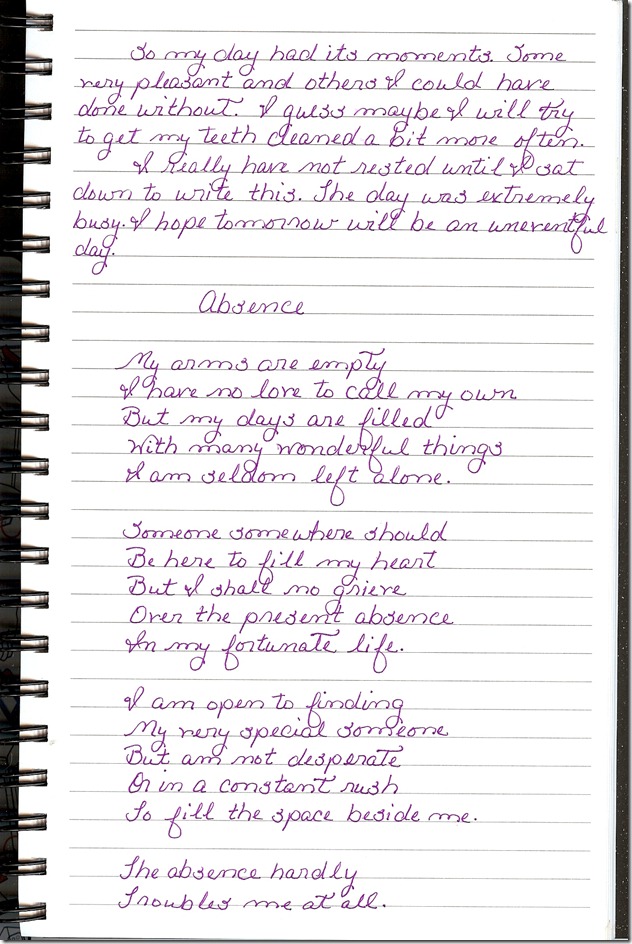 So my day had its moments. Some
very pleasant and others I could have
done without. I guess maybe I will try
to get my teeth cleaned a bit more often.
I really have not rested until I sat
down to write this. The day was extremely
busy. I hope tomorrow will be an uneventful
day.
Absence
My arms are empty
I have no love to call my own
But my days are filled
With many wonderful things
I am seldom left alone.
Someone somewhere should
Be here to fill my heart
But I shall no grieve
Over the present absence
In my fortunate life.
I am open to finding
My very special someone
But am not desperate
Or in a constant rush
To fill the space beside me.
The absence hardly
Troubles me at all.